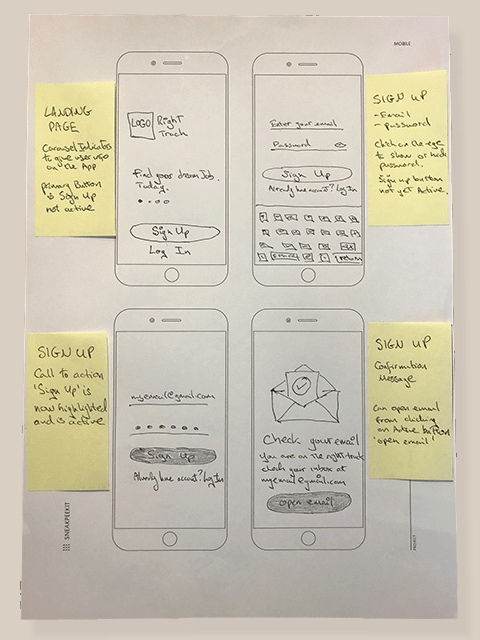 MOBILE
LANDING
PAGE
Carousel Indicates
to give user info
on the App
primary Button
Sign Up
not active
LOGO Right
Track
Find your dream Job.
Today.
Sign Up
Log In
Enter your email
Password
Sign Up
Already have account? Log In
return
SIGN UP
- Email
- Password
Click on the eye
to show or hide
password.
Sign up button
not yet Active.
SIGN UP
Call to action
'Sign Up' is
now highlighted
and is active
myemail@gmail.com
Sign Up
Already have account? Log In
Check your email
You are on the right track
check your inbox at
myemail@gmail.com
open email
SIGN UP
Confirmation
Message
Can open email
from clicking
on Active button
'open email'
SNEAKPEEKIT
PROJECT